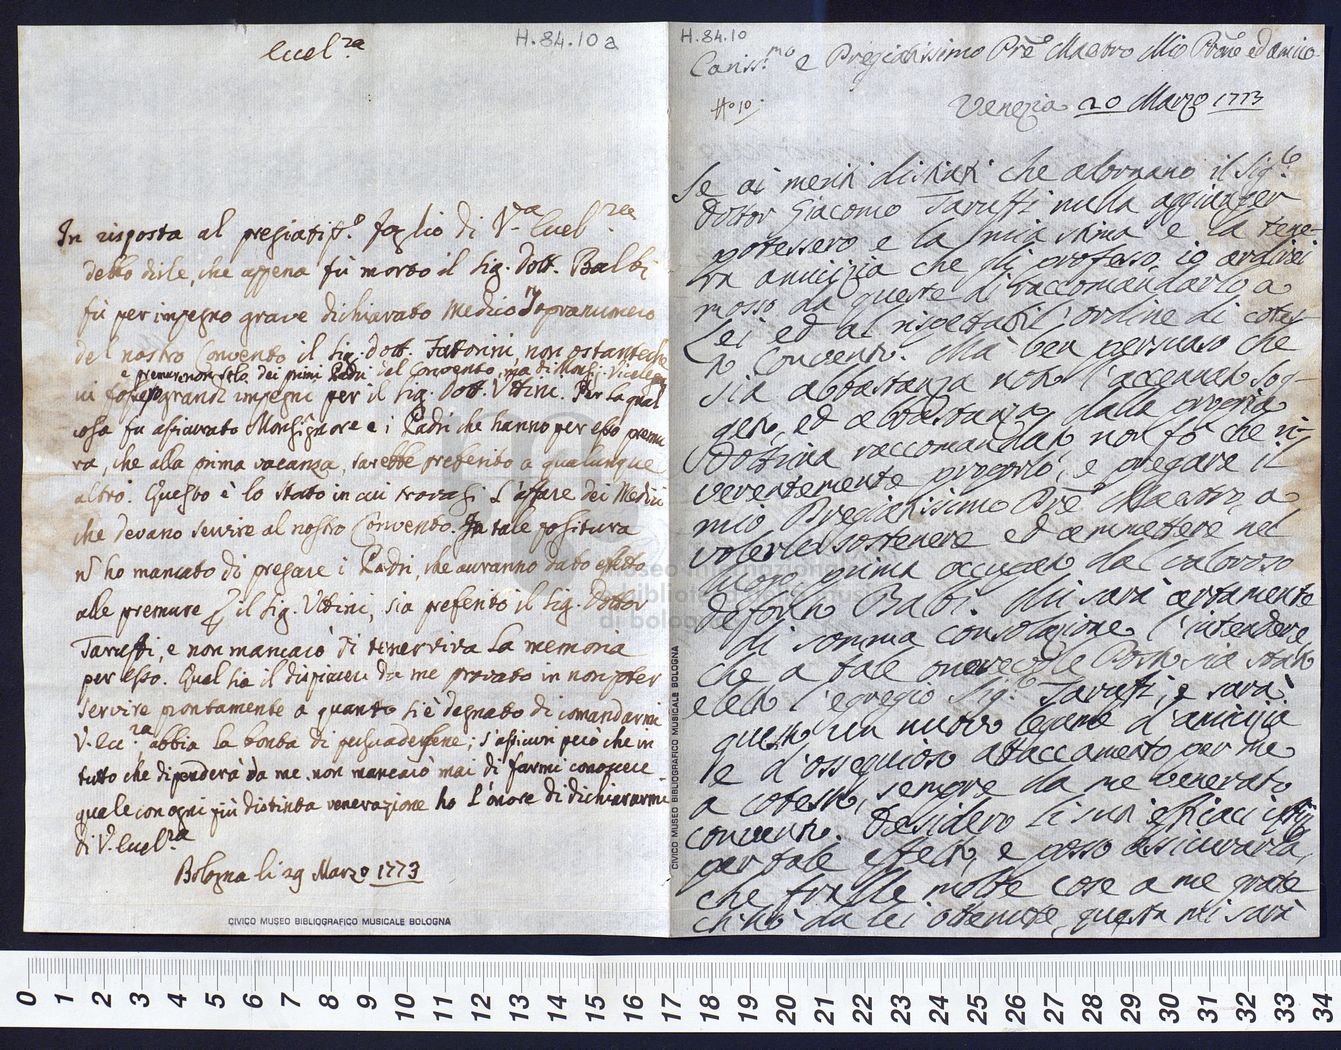 H.84.10a
Eccel.za
In risposta al pregiatiss.o foglio di V.a Eccel.za
debbo dirle, che appena fù morto il Sig. Dott. Balbi
fù per impegno grave dichiarato Medico Sopranumero
del nostro Convento il Sig. Dott. Fattorini, non ostante che
e premure non solo dei primi Padri del Convento, ma di Monsig. Vicele
in grandi impegni per il Sig. Dott. Uttini. Per la qual
cosa fu assicurato Monsignore e i Padri che hanno per esso premu
ra, che alla prima vacanza, sarebbe preferito a qualunque
altro. Questo è lo stato in cui trovasi l'affare dei Medici
che devano servire al nostro Convento. In tale positura
nō ho mancato di pregare i Padri, che avranno dato effetto
alle premure p il Sig. Uttini, sia preferito il Sig. Dottor
Taruffi, e non mancaiò di tenerviva la memoria
per esso. Qual sia il dispiacere da me provato in non poter
servire prontamente a quanto si è degnato di comandarmi
V. Ecc.za abbia la bontà di persuadersene; s'assicuri però che in
tutto che dipenderà da me, non mancaiò mai di farmi conoscere
quale con ogni più distinta venerazione ho l'onore di dichiararmi
di V. Eccel.za
Bologna li 29 Marzo 1773
CIVICO MUSEO BIBLIOGRAFICO MUSICALE BOLOGNA
H.84.10
Cariss.mo e Pregiatissimo Prē Maestro Mio Prōne ed amico
Venezia 20 Marzo 1773
No 10.
Se ai meriti distinti che adornano il Sig.e
Dottor Giacomo Taruffi nulla aggiunger
potessero e la mia stima e la tene-
ra amicizia che gli professo, io ardirei
mosso da queste di raccomandarlo a
Lei ed al rispettabil ordine di cotes
to Convento. Mà ben persuaso che
sia abbastanza noto l'accennato sog-
getto, ed abbastanza dalla propria
Dottrina raccomandato, non fò che ri-
verentemente proporlo, e pregare il
mio Pregiatissimo Prē Maestro, a
volerlo sostenere ed ammettere nel
luogo prima occupato dal valoroso
defonto Balbi. Mi sarà certamente
di somma consolazione l'intendere
che a tale onorevole Posto sia stato
eletto l'egregio Sig.e Taruffi, e sarà
questo un nuovo legame d'amicizia
e d'ossequioso attaccamento per me
a cotesto, sempre da me venerato
convento. Desidero li suoi efficaci
per tale effetto, e posso assicurarla,
che frà le molte cose a me grate
ch'hò da lei ottenute, questa mi sarà
CIVICO MUSEO BIBLIOGRAFICO MUSICALE BOLOGNA
museo internazionale
e biblioteca della musica
di bologna
0 1 2 3 4 5 6 7 8 9 10 11 12 13 14 15 16 17 18 19 20 21 22 23 24 25 26 27 28 29 30 31 32 33 34